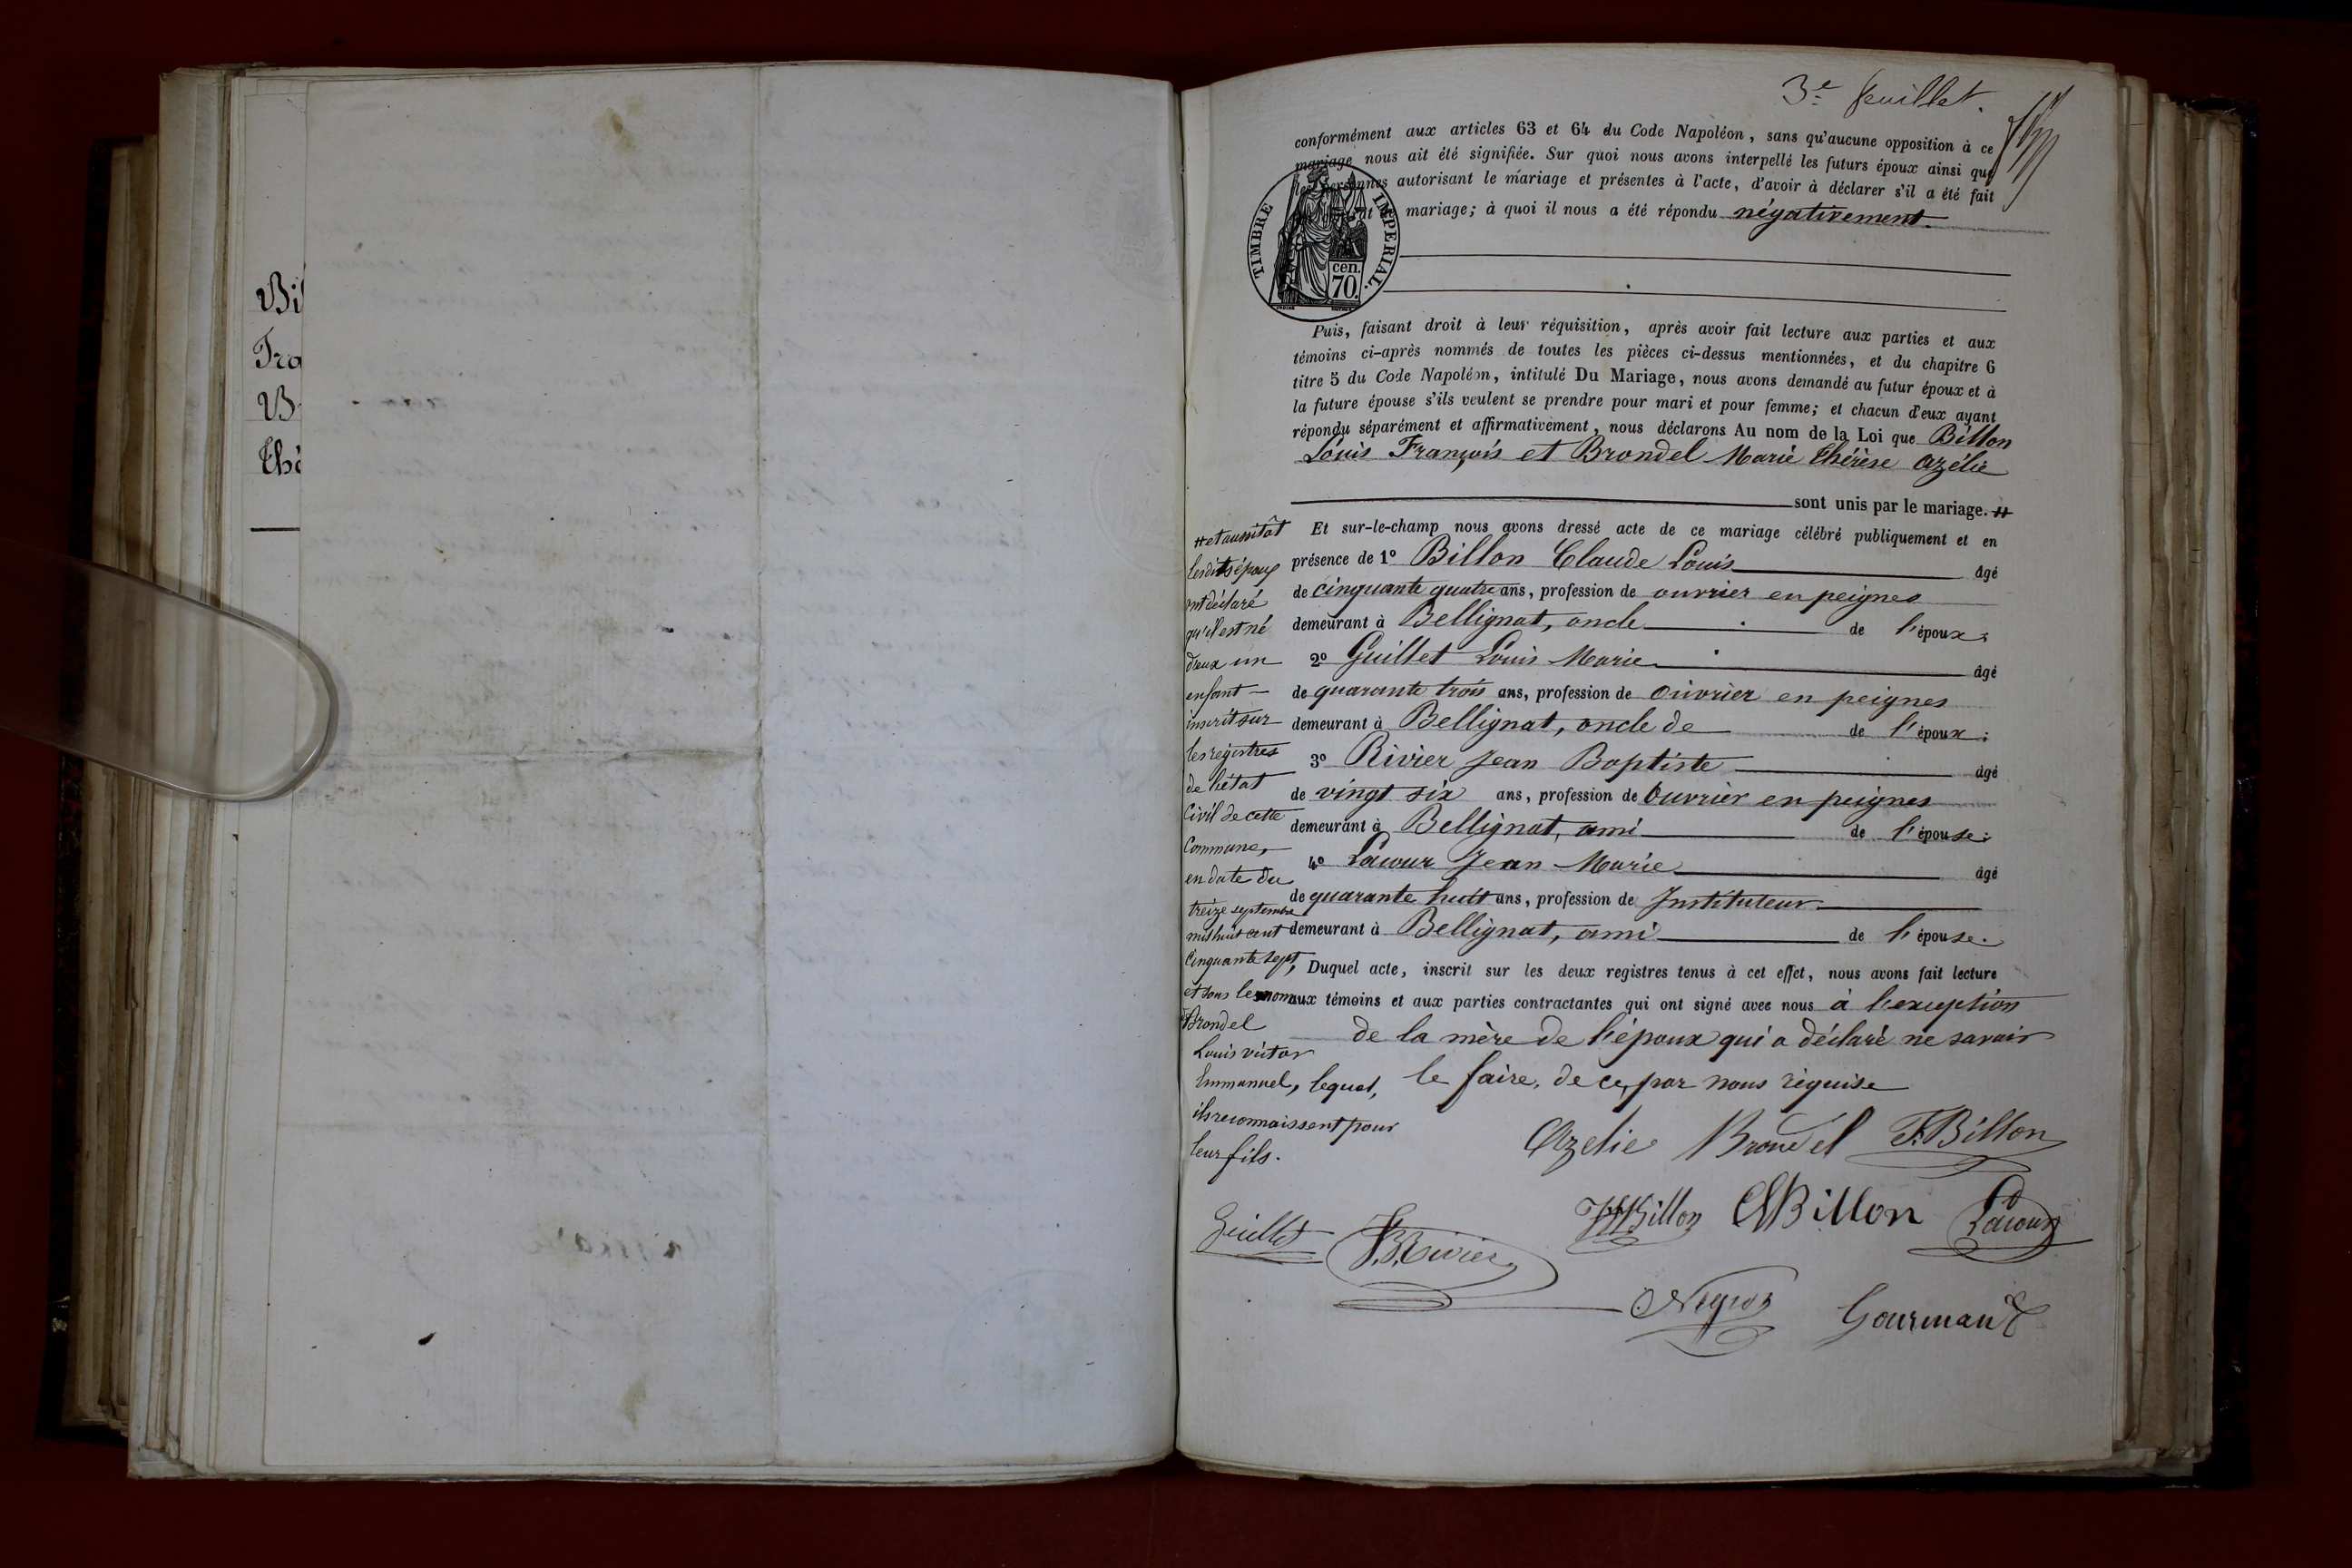 Bi
Tra
B
thé
3e feuillet.
conformément aux articles 63 et 64 du Code Napoléon, sans qu'aucune opposition à ce
mariage nous ait été signifiée. Sur quoi nous avons interpellé les futurs époux ainsi que
les personnes autorisant le mariage et présentes à l'acte, d'avoir à déclarer s'il a été fait
mariage; à quoi il nous a été répondu négativement.
TIMBRE IMPERIAL.
cen.
70.
Puis, faisant droit à leur réquisition, après avoir fait lecture aux parties et aux
témoins ci-après nommés de toutes les pièces ci-dessus mentionnées, et du chapitre 6
titre 5 du Code Napoléon, intitulé Du Mariage, nous avons demandé au futur époux et à
la future épouse s'ils veulent se prendre pour mari et pour femme; et chacun d'eux ayant
répondu séparément et affirmativement, nous déclarons Au nom de la Loi que Billon
Louis François et Brondel Marie Thérèse Azélie
sont unis par le mariage. #
Et sur-le-champ nous avons dressé acte de ce mariage célébré publiquement et en
présence de 1° Billon Claude Louis âgé
de cinquante quatre ans, profession de ouvrier en peignes
demeurant à Bellignat, oncle de l'époux;
2° Guillet Louis Marie âgé
de quarante trois ans, profession de ouvrier en peignes
demeurant à Bellignat, oncle de de l'époux;
3° Rivier Jean Baptiste âgé
de vingt six ans, profession de ouvrier en peignes
demeurant à Bellignat, ami de l'épouse;
4° Lacour Jean Marie âgé
de quarante huit ans, profession de Instituteur
demeurant à Bellignat, ami de l'épouse.
Duquel acte, inscrit sur les deux registres tenus à cet effet, nous avons fait lecture
aux témoins et aux parties contractantes qui ont signé avec nous à l'exception
de la mère de l'époux qui a déclaré ne savoir
le faire, de ce, par nous réquise
# et aussitôt
lesdits époux
ont déclaré
qu'il est né
d'eux un
enfant
inscrit sur
les registres
de l'état
Civil de cette
Commune,
en date du
treize septembre
mil huit cent
cinquante sept,
et sous les noms
de Brondel
Louis victor
Emmanuel, lequel,
ils reconnaissent pour
leur fils.
Azelie Brondel F. Billon
Guillet J. B. Rivier Billon CL Billon Lacour
Negroz Gourmand